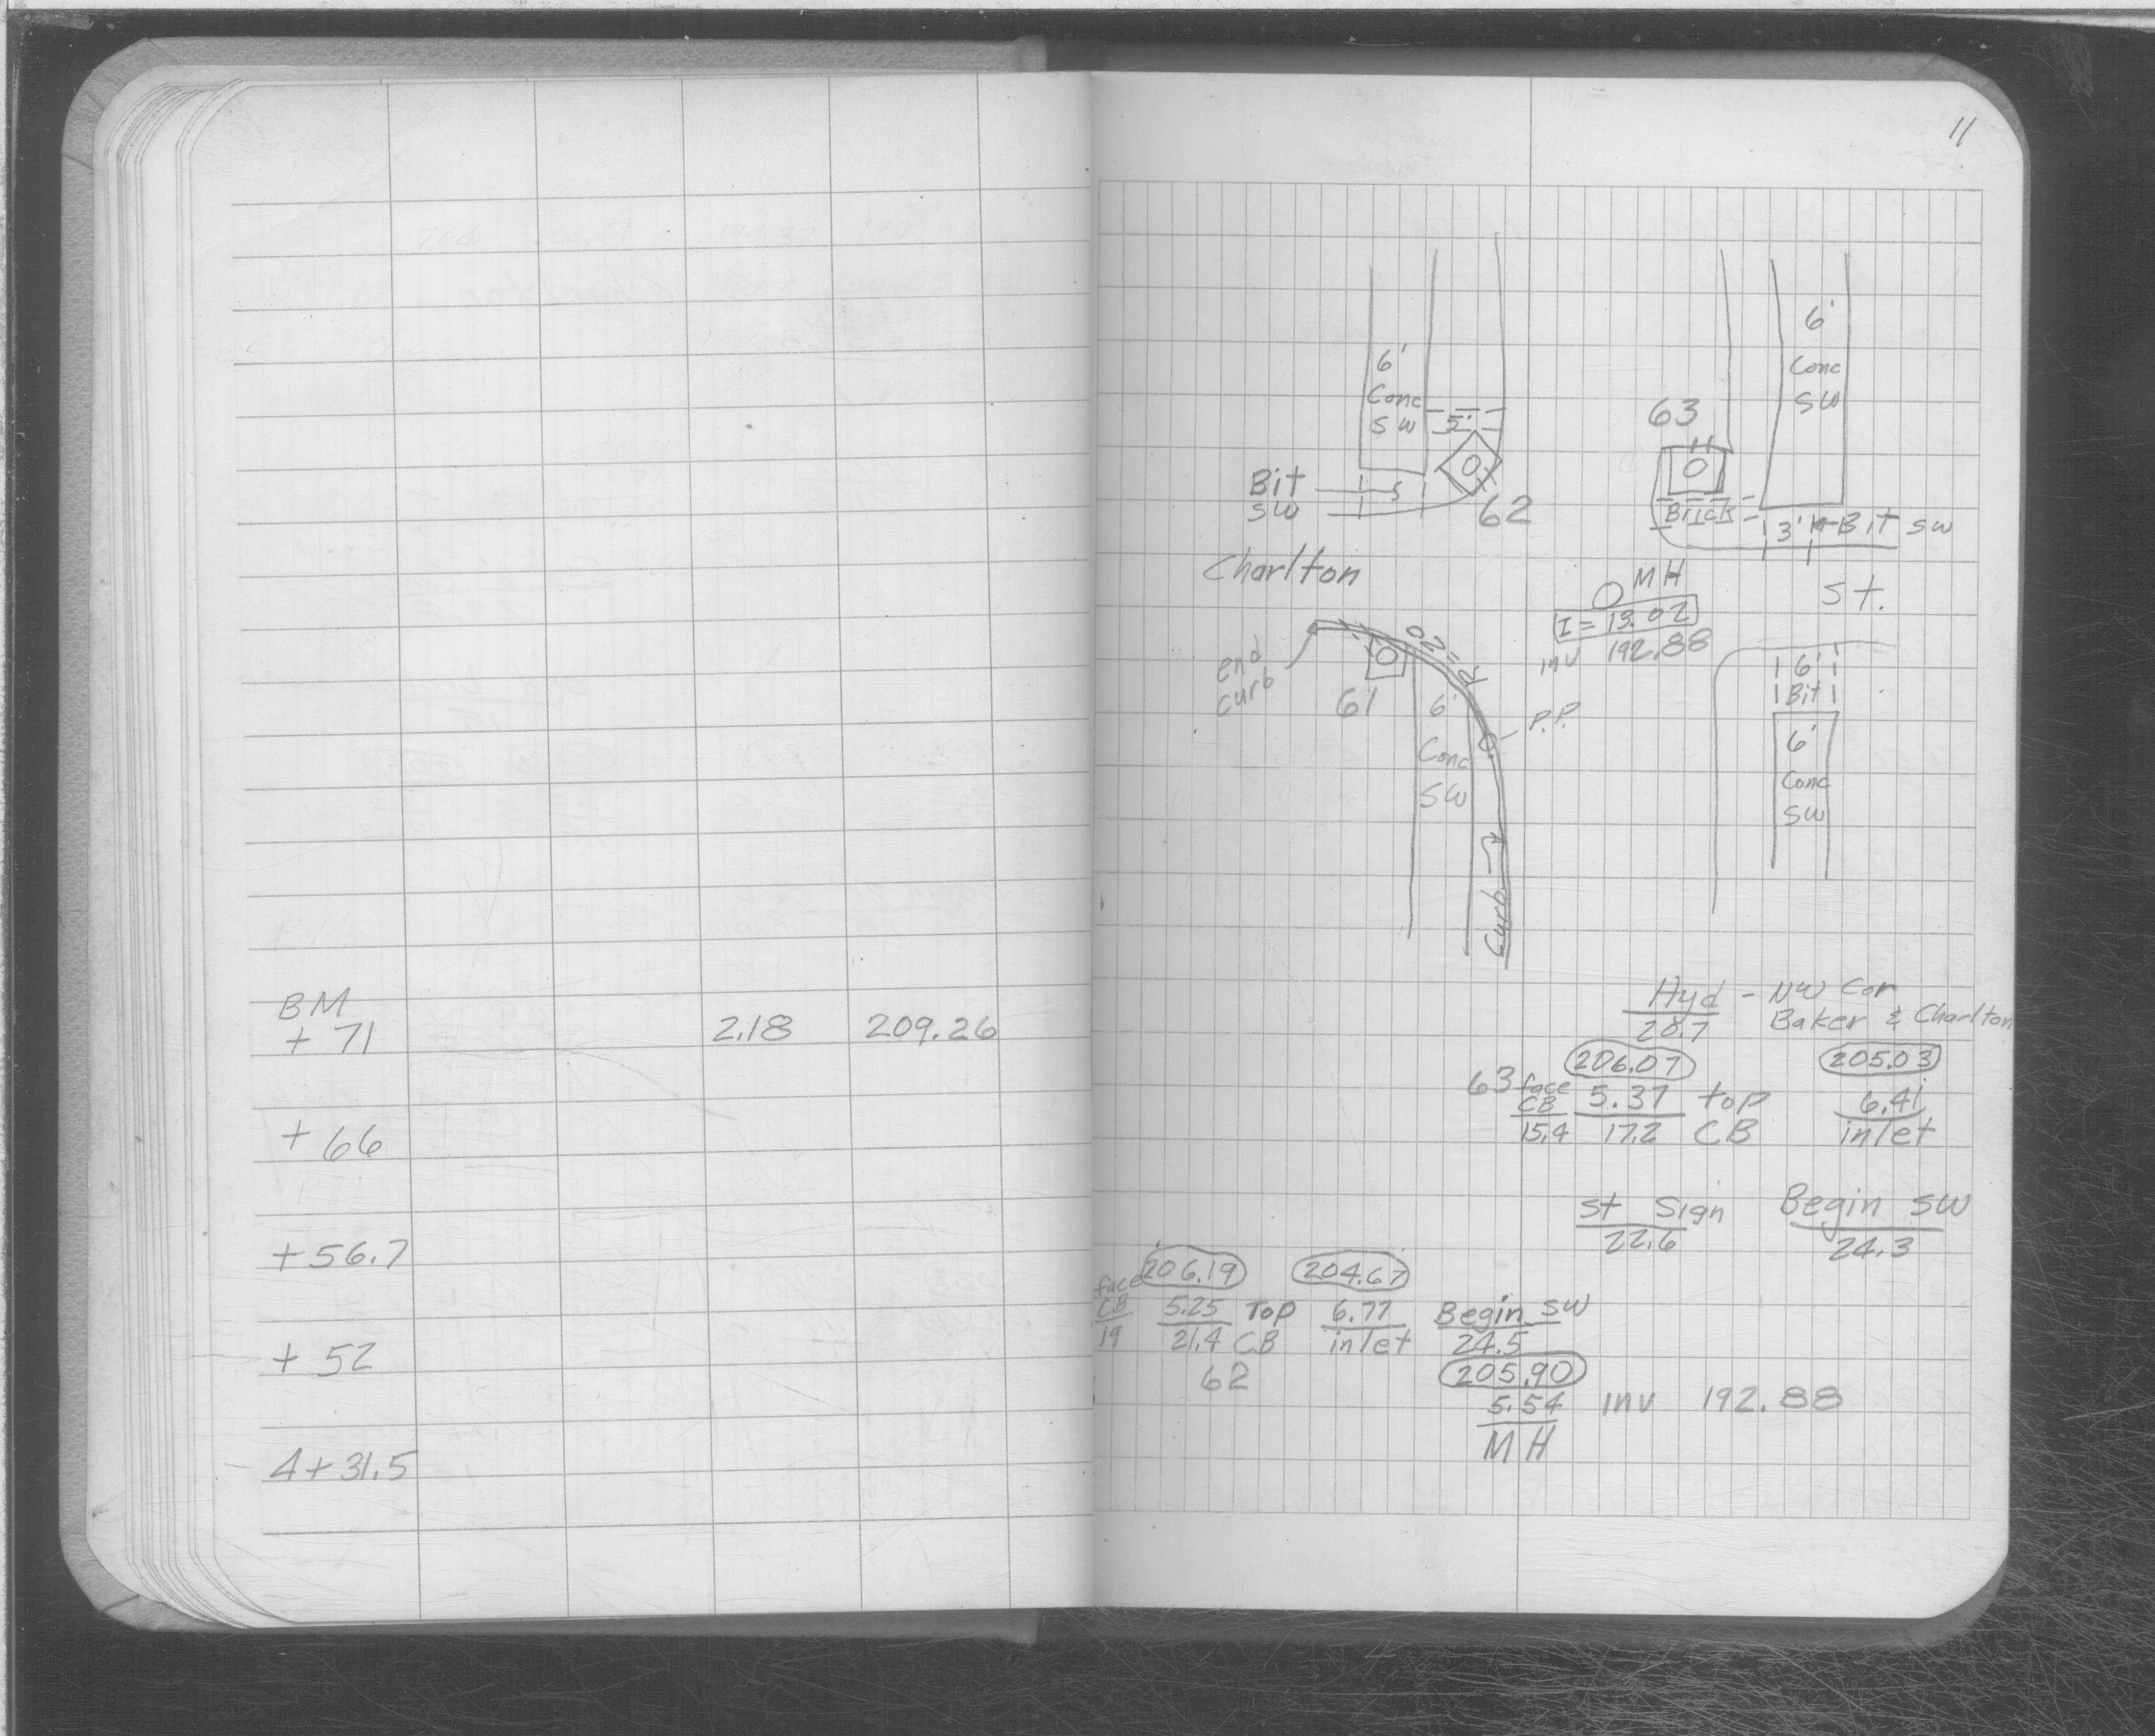 BM
+ 71 2.18 209.26
+ 66
+ 56.7
+ 52
4+31.5
11
6' Conc SW
5'
Bit SW
5
62
63
6' Conc SW
Brick
3' Bit SW
Charlton St.
MH
I = 13.02
inv 192.88
end curb
61
R=20
P.P.
6' Conc SW
Curb
6' Bit
6' Conc SW
Hyd - NW Cor
20.7 Baker & Charlton
206.07 205.03
63 face CB 5.37 top 6.41
15.4 17.2 CB inlet
St Sign Begin SW
22.6 24.3
206.19 204.67
face CB 5.25 Top 6.77 Begin SW
19 21.4 CB inlet 24.5
62 205.90
5.54 INV 192.88
MH